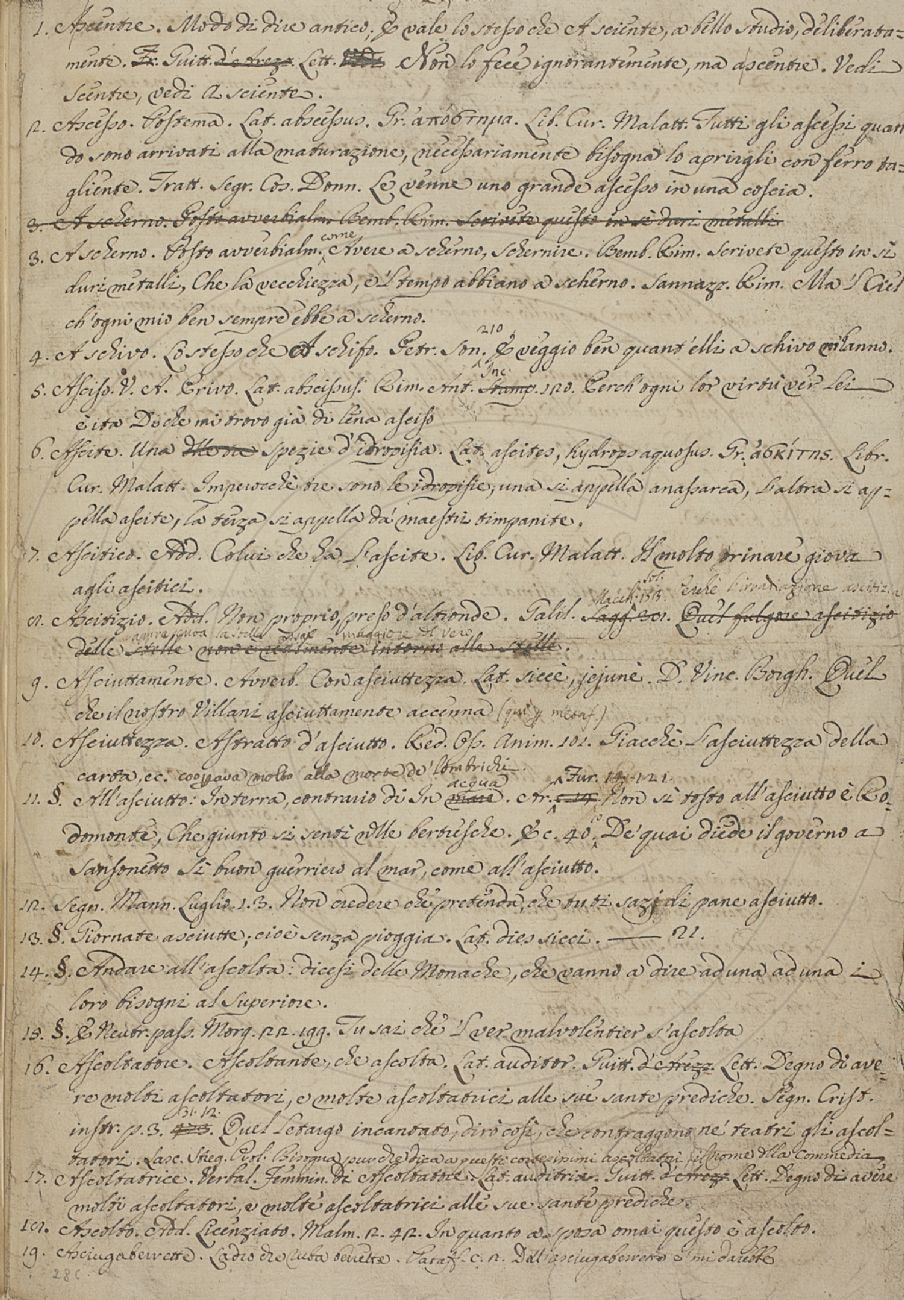 1. Ascentre. Modo di dire antico, e vale lo stesso che A sciente, a bello studio, deliberata=
mente. Fr. Guitt. d'Arezz. Lett. Non lo fece ignorantemente, ma ascentre. Vedi
Scentre, vedi A sciente.
2. Ascesso. Postema. Lat. abscessus. Gr. ἀπόστημα. Lib. Cur. Malatt. Tutti gli ascessi quan
do sono arrivati alla maturazione, necessariamente bisogna lo aprirgli con ferro ta=
gliente. Tratt. Segr. Cos. Donn. Le venne uno grande ascesso in una coscia.
3. A scherno. Posto avverbialm. Bemb. Rim. Scrivete questo in sì duri metalli
3. A scherno. Posto avverbialm. come Avere a scherno, Schernire. Bemb. Rim. Scrivete questo in sì
duri metalli, Che la vecchiezza, e 'l tempo abbiano a scherno. Sannazz. Rim. Ma 'l Ciel
ch'ogni mio ben sempre ebbe a scherno.
4. A schivo. Lo stesso che A schifo. Petr. Son. 210. E veggio ben quant'elli a schivo m'hanno.
5. Asciso. V. A. Privo. Lat. abscissus. Rim. Ant. Inc. 120. Perch'ogni lor virtù ver lei
è ita Dè che mi trovo già di lena asciso
6. Ascite. Una spezie d'idropisia. Lat. ascites, hydrops aquosus. Gr. ἀσκίτης. Libr.
Cur. Malatt. Imperocchè tre sono le idropisie, una si appella anassarca, l'altra si ap=
pella ascite, la terza si appella da' maestri timpanite.
7. Ascitico. Add. Colui che ha l'ascite. Lib. Cur. Malatt. Il molto orinare giova
agli ascitici.
8. Ascitizio. Add. Non proprio, preso d'altronde. Galil. Sagg. 201. Macch. sol. 131. Perchè l'irradiazione ascitizia
Quel fulgore ascitizio
delle stelle non è realmente intorno alle stelle.
9. Asciuttamente. Avverb. Con asciuttezza. Lat. siccè, jejunè. D. Vinc. Borgh. Quel
che il nostro Villani asciuttamente accenna (qui metaf.)
10. Asciuttezza. Astratto d'asciutto. Red. Os. Anim. 101. Giacchè l'asciuttezza della
carta, ec. cooperava molto alla morte de' lombrichi.
11. §. All'asciutto: In terra, contrario di In mare acqua. Ar. Fur. 14. 121. Non sì tosto all'asciutto è Ro=
domonte, Che giunto si sentì nlle bertesche. E c. 40. De' quai diede il governo a
Sansonetto Sì buon guerriero al mar, come all'asciutto.
12. Segn. Mann. Luglio. 1. 3. Non credere che pretenda, che tu ti sazj di pane asciutto.
13. §. Giornate asciutte; cioè senza pioggia. Lat. dies sicci. —— 21.
14. §. Andare all'ascolta: dicesi delle Monache, che vanno a dire ad una ad una i
loro bisogni al Superiore.
15. §. E Neutr. pass. Morg. 22. 199. Tu sai che 'l ver malvolentier s'ascolta
16. Ascoltatore. Ascoltante, che ascolta. Lat. auditor. Guitt. d'Arezz. Lett. Degno di ave=
re molti ascoltatori, e molte ascoltatrici alle sue sante prediche. Segn. Crist.
instr. p. 3. 31. 12. Quel letargo incantato, dirò così, che contraggono ne' teatri gli ascol=
tatori. Lasc. Streg. Prol. Bisogna pure che si dica a questi ascoltatori il nome dlla Commedia
17. Ascoltatrice. Verbal. Femmin. Di Ascoltatore. Lat. auditrix. Guitt. d'Arezz. Lett. Degno di avere
molti ascoltatori, e molte ascoltatrici alle sue sante prediche.
18. Ascolto. Add. Licenziato. Malm. 2. 42. In quanto a sposa omai questo è ascolto.
19. Asciugaberrette. Ladro che ruba berrette. Pataff. c. 2. Dell'asciugaberrette e mi darebbe